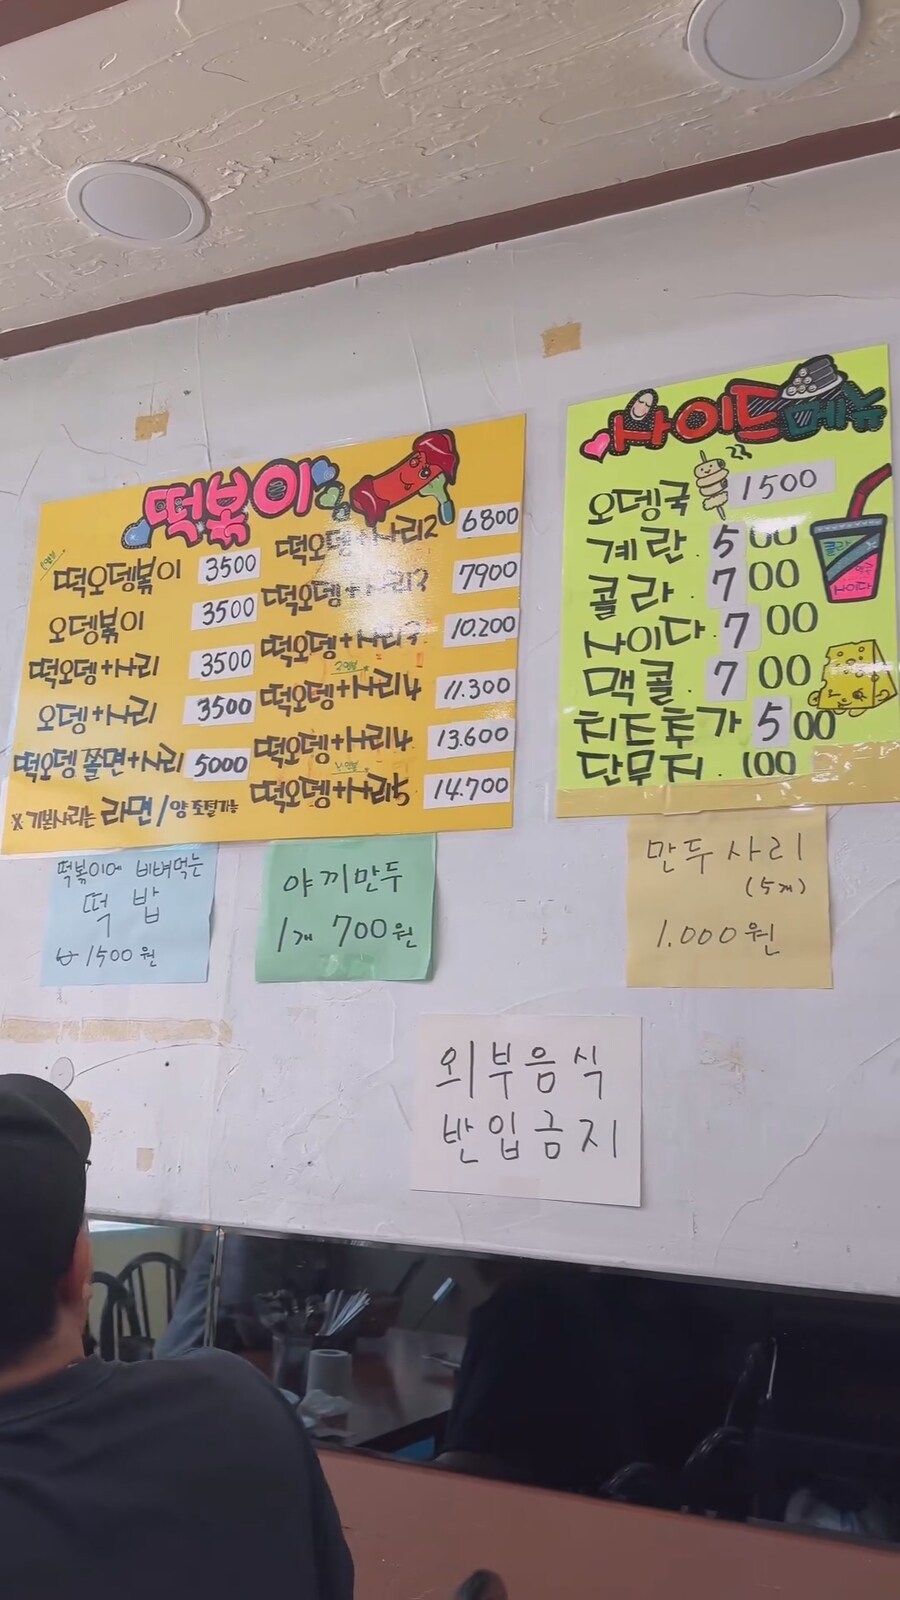 떡볶이
떡오뎅볶이 3500
오뎅볶이 3500
떡오뎅+사리 3500
오뎅+사리 3500
떡오뎅쫄면+사리 5000
※ 기본사리는 라면/양 조절가능
떡오뎅+사리2 6800
떡오뎅+사리3 7900
떡오뎅+사리 10.200
떡오뎅+사리4 11.300
떡오뎅+사리4 13.600
떡오뎅+사리5 14.700
사이드메뉴
오뎅국 1500
계란. 500
콜라. 700
사이다. 700
맥콜. 700
치즈추가 500
단무지. 100
콜라
사이다
떡볶이에 비벼먹는
떡밥
₩1500원
야끼만두
1개 700원
만두사리
(5개)
1.000원
외부음식
반입금지